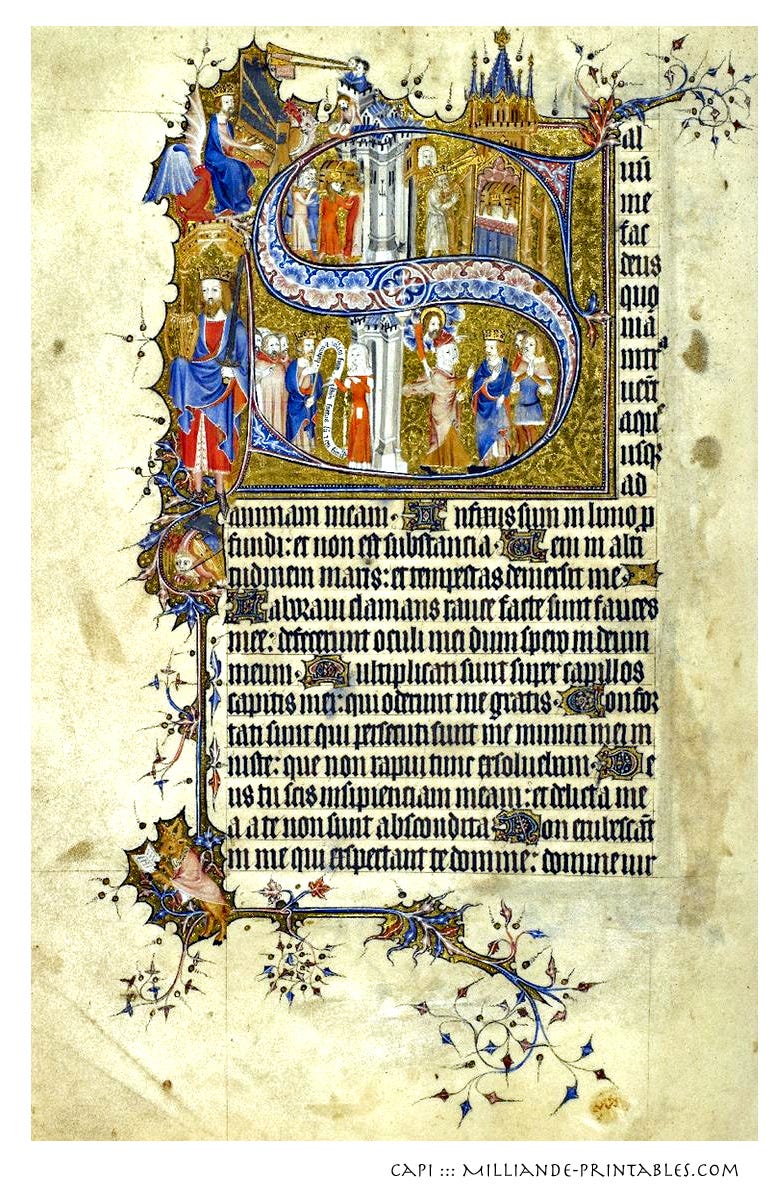 Sal
uū
me
fac
deus
quo
nia
intr
uert̄
aque
usqꝫ
ad
animam meam. Infixus sum in limo p
fundi: et non est substancia. Veni in alti
tudinem maris: et tempestas demersit me.
Laboraui clamans rauce facte sunt fauces
mee: defecerunt oculi mei dum spero in deum
meum. Multiplicati sunt super capillos
capitis mei: qui oderunt me gratis. Confor
tati sunt qui persecuti sunt me inimici mei in
iuste: que non rapui tunc exsoluebam. De
us tu scis insipienciam meam: et delicta me
a a te non sunt abscondita. Non erubescāt
in me qui exspectant te domine: domine uir
CAPI ::: MILLIANDE-PRINTABLES.COM